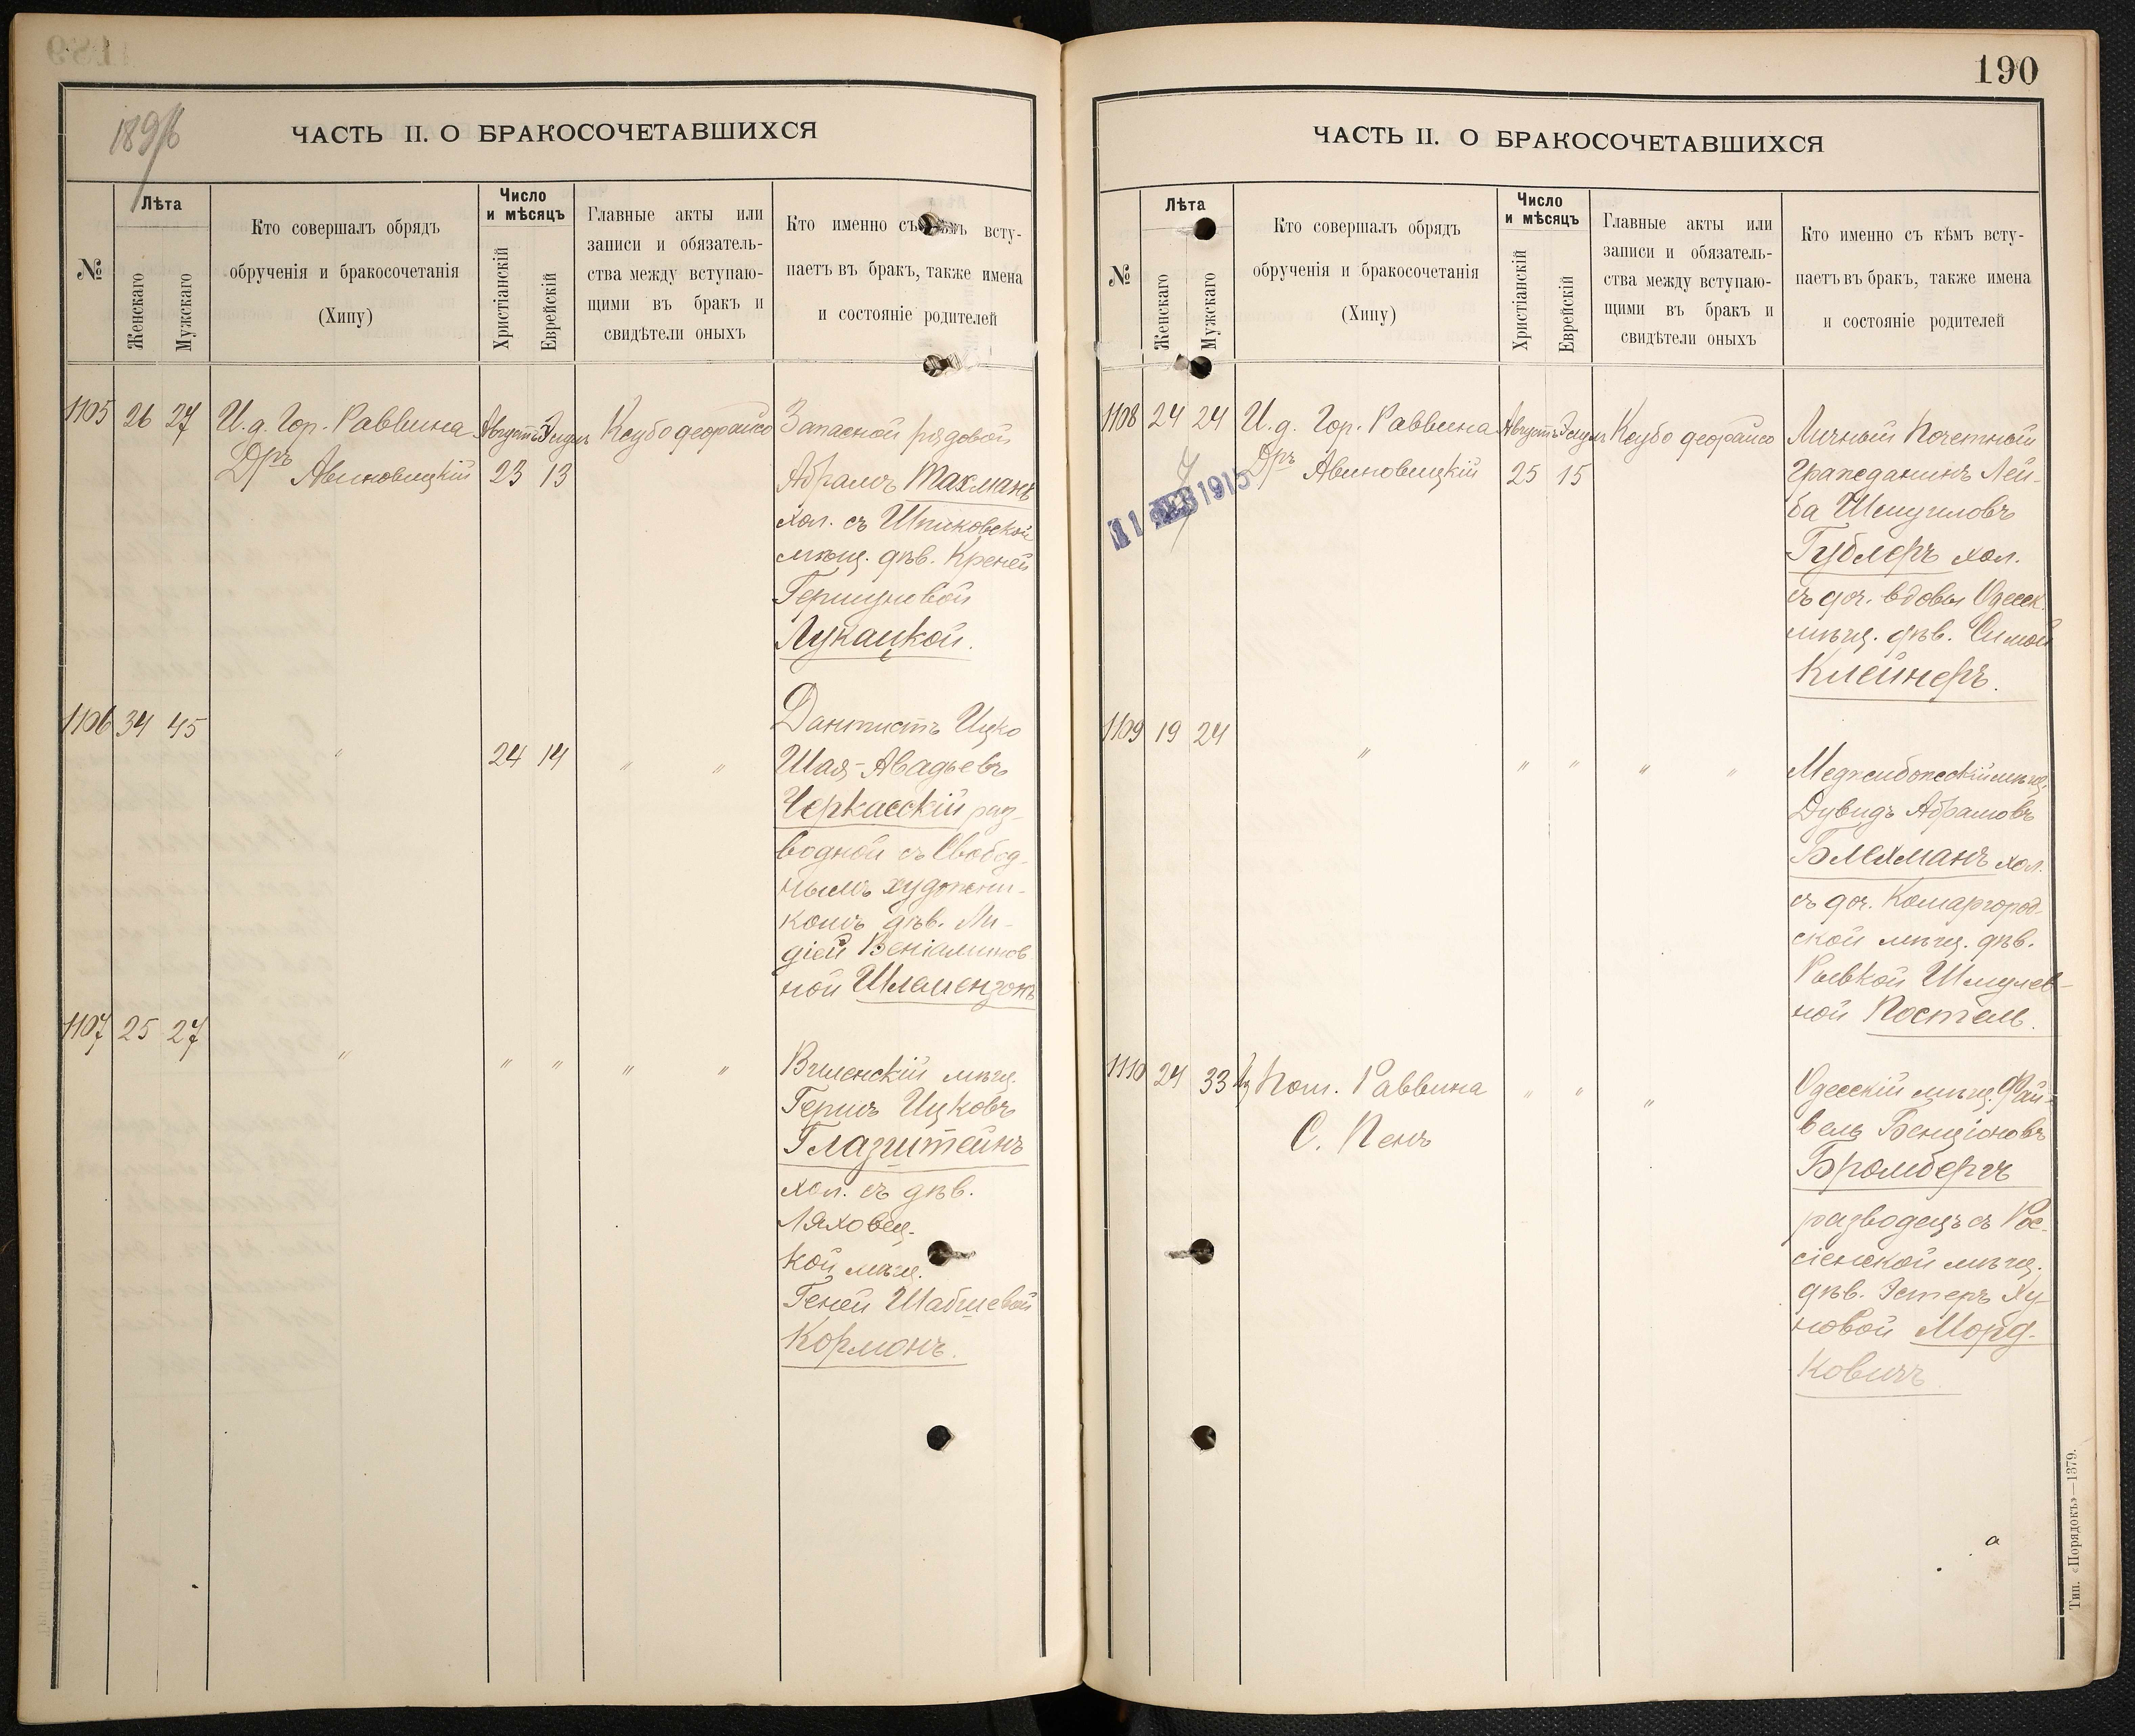 189
189
ЧАСТЬ II. О БРАКОСОЧЕТАВШИХСЯ
№
Лѣта
Женскаго
Мужскаго
Кто совершалъ обрядъ
обрученія и бракосочетанія
(Хипу)
Число
и мѣсяцъ
Христіанскій
Еврейскій
Главные акты или
записи и обязатель-
ства между вступаю-
щими въ бракъ и
свидѣтели оныхъ
Кто именно съ всту-
паетъ въ бракъ, также имена
и состояніе родителей
1105 26 27 И. д. Гор. Раввина Августъ Элулъ Ксубо деорайсо Запасной рядовой
Дръ Авиновицкій 23 13 Абрамъ Тахманъ
хол. съ Шпиковской
мѣщ. дѣв. Креней
Гершуновой
Лукацкой.
1106 34 45 Дантистъ Ицко
" 24 14 " " Шая-Авадьевъ
Черкасскій раз-
водной съ Свобод-
нымъ художни-
комъ дѣв. Ли-
діей Веніаминов
ной
1107 25 27
" " " " " Виленскій мѣщ.
Гершъ Ицковъ
Глазштейнъ
хол. съ дѣв.
Ляховец-
кой мѣщ.
Геней Шабшевой
Корманъ.
190
ЧАСТЬ II. О БРАКОСОЧЕТАВШИХСЯ
№
Лѣта
Женскаго
Мужскаго
Кто совершалъ обрядъ
обрученія и бракосочетанія
(Хипу)
Число
и мѣсяцъ
Христіанскій
Еврейскій
Главные акты или
записи и обязатель-
ства между вступаю-
щими въ бракъ и
свидѣтели оныхъ
Кто именно съ кѣмъ всту-
паетъ въ бракъ, также имена
и состояніе родителей
1108 24 24 И. д. Гор. Раввина Августъ Элулъ Ксубо деорайсо Личный Почетный
Дръ Авиновицкій 25 15 Гражданинъ Лей-
11 ФЕВ 1915
ба Шмуиловъ
Гублеръ хол.
съ доч. вдовы Одесск.
мѣщ. дѣв. Симой
Клейнеръ.
1109 19 24
" " " " " Меджибожскій мѣщ.
Дувидъ Абрамовъ
Блехманъ хол.
съ доч. Комаргород-
ской мѣщ. дѣв.
Рывкой Шмулев-
ной Постель.
1110 24 33 Пом. Раввина " " " Одесскій мѣщ. Фай-
С. Пенъ вель Бенціоновъ
Бромбергъ
разводецъ съ Рос-
сіенской мѣщ.
дѣв. Эстеръ Ху-
новой Морд-
ковичъ
Тип. «Порядокъ»—1379.